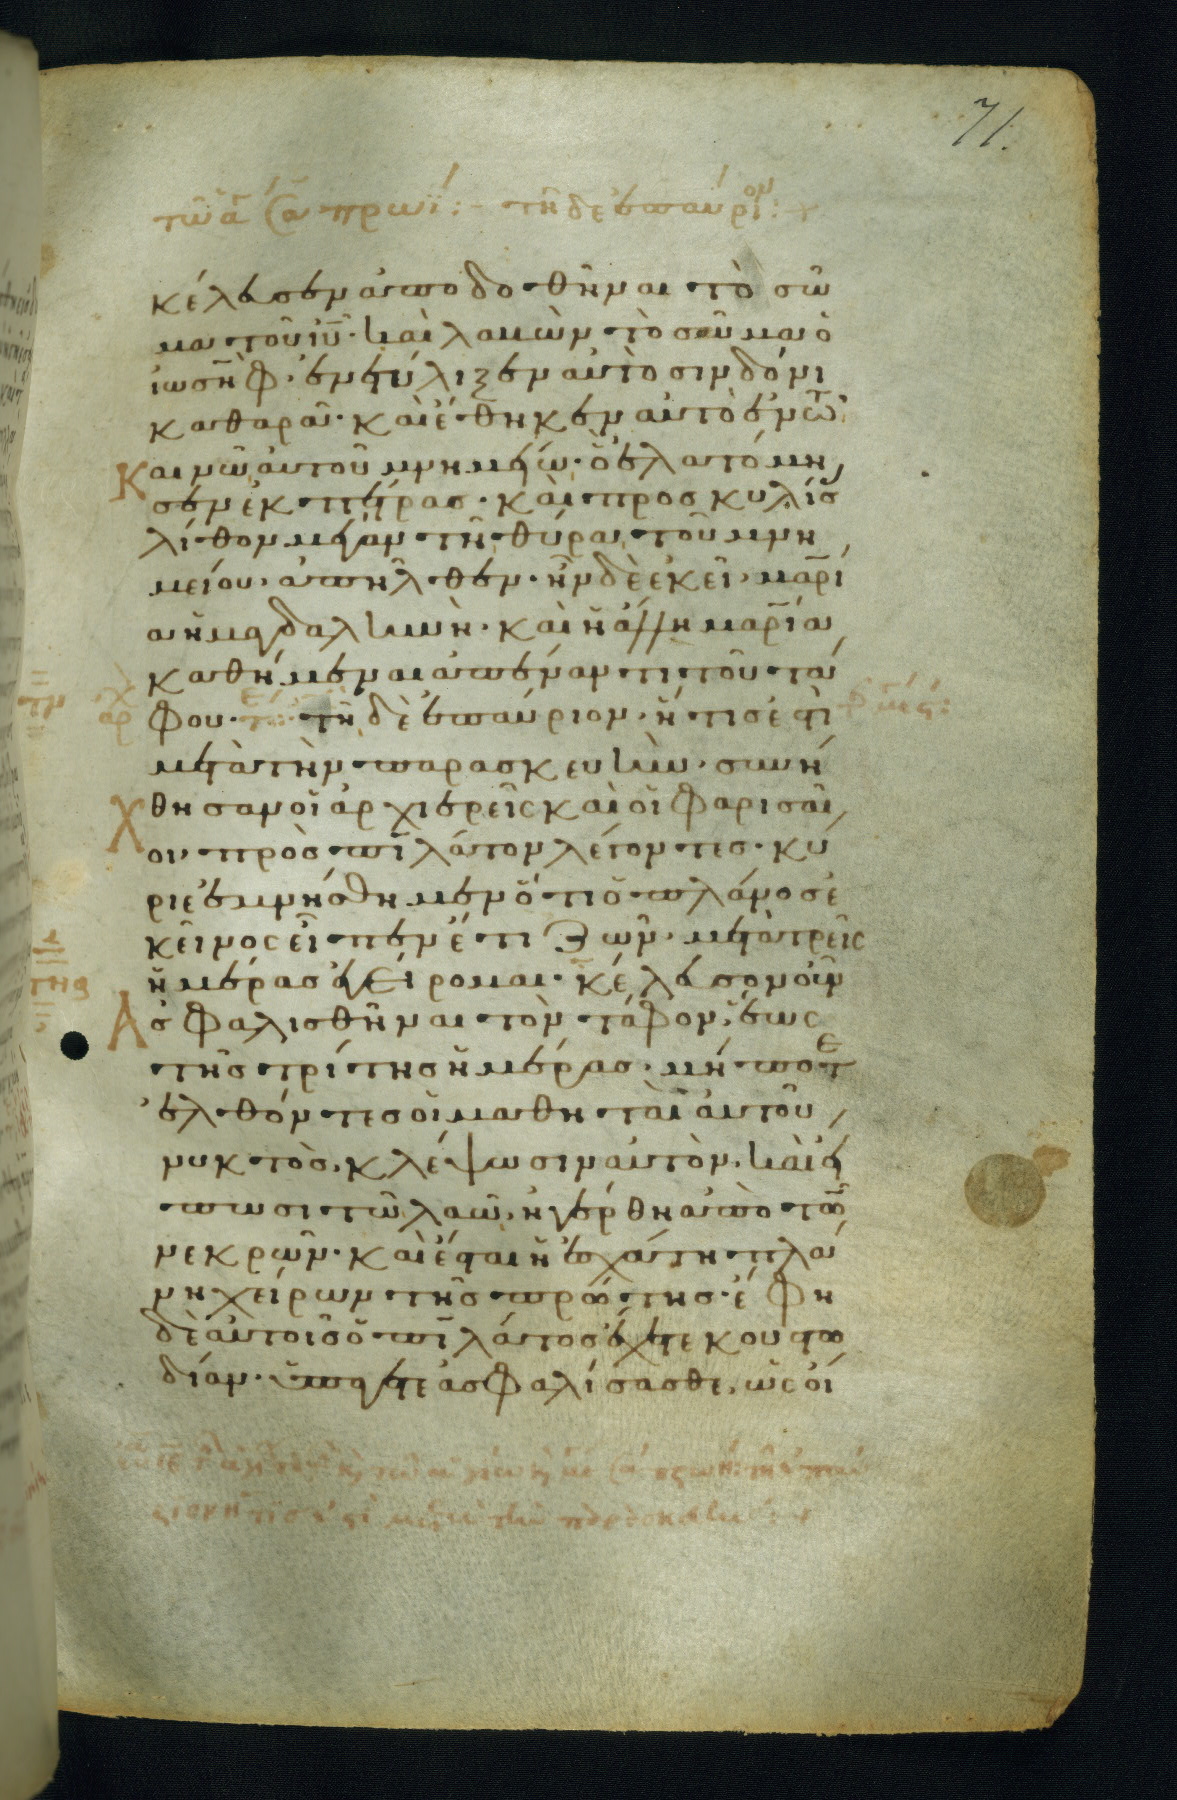 71.
τῶ ἁ σα πρωΐ: τῆ δε ἐπαύριον:
κέλευσεν ἀποδοθῆναι τὸ σῶ
μα τοῦ ιυ. καὶ λαβὼν τὸ σῶμα ὁ
ἰωσὴφ. ἐνετύλιξεν αὐτὸ σινδόνι
καθαρᾶ. καὶ ἔθηκεν αὐτὸ ἐν τῶ
καινῶ αὐτοῦ μνημείω. ὃ ἐλατόμη
σεν ἐκ πέτρας. καὶ προσκυλίσ
λίθον μέγαν τῆ θύρα τοῦ μνη
μείου. ἀπῆλθεν. ἦν δὲ ἐκεῖ. μαρί
α ἡ μαγδαληνὴ. καὶ ἡ ἄλλη μαρία
καθήμεναι ἀπέναντι τοῦ τά
φου. τῆ δὲ ἐπαύριον. ἥτις ἐστὶ
μετὰ τὴν παρασκευὴν. συνή
χθησαν οἱ ἀρχιερεῖς καὶ οἱ φαρισαῖ
οι πρὸς πιλάτον λέγοντες. κύ
ριε ἐμνήσθημεν ὅτι ὁ πλάνος ἐ
κεῖνος εἶπεν ἔτι ζῶν. μετὰ τρεῖς
ἡμέρας ἐγείρομαι. κέλευσον οὖν
ἀσφαλισθῆναι τὸν τάφον, ἕως
τῆς τρίτης ἡμέρας. μήποτε
ἐλθόντες οἱ μαθηταὶ αὐτοῦ
νυκτὸς. κλέψωσιν αὐτὸν. καὶ εἴ
πωσι τῶ λαῶ, ἠγέρθη ἀπὸ τῶν
νεκρῶν. καὶ ἔσται ἡ ἐσχάτη πλά
νη χείρων τῆς πρώτης. ἔφη
δὲ αὐτοῖς ὁ πιλάτος ἔχετε κουστω
δίαν. ὑπάγετε ἀσφαλίσασθε, ὡς οἴ